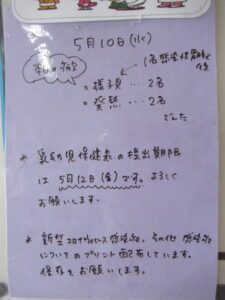 5月10日(水)
本日の病欠
1名感染性胃腸炎
後
• 様子見 … 2名
• 発熱 … 2名
でした
* 乳幼児保健表の提出期限
は 5月12日(金)です。よろしく
お願いします。
* 新型コロナウイルス感染症、その他 感染症
についてのプリント配布しています。
保存をお願いします。